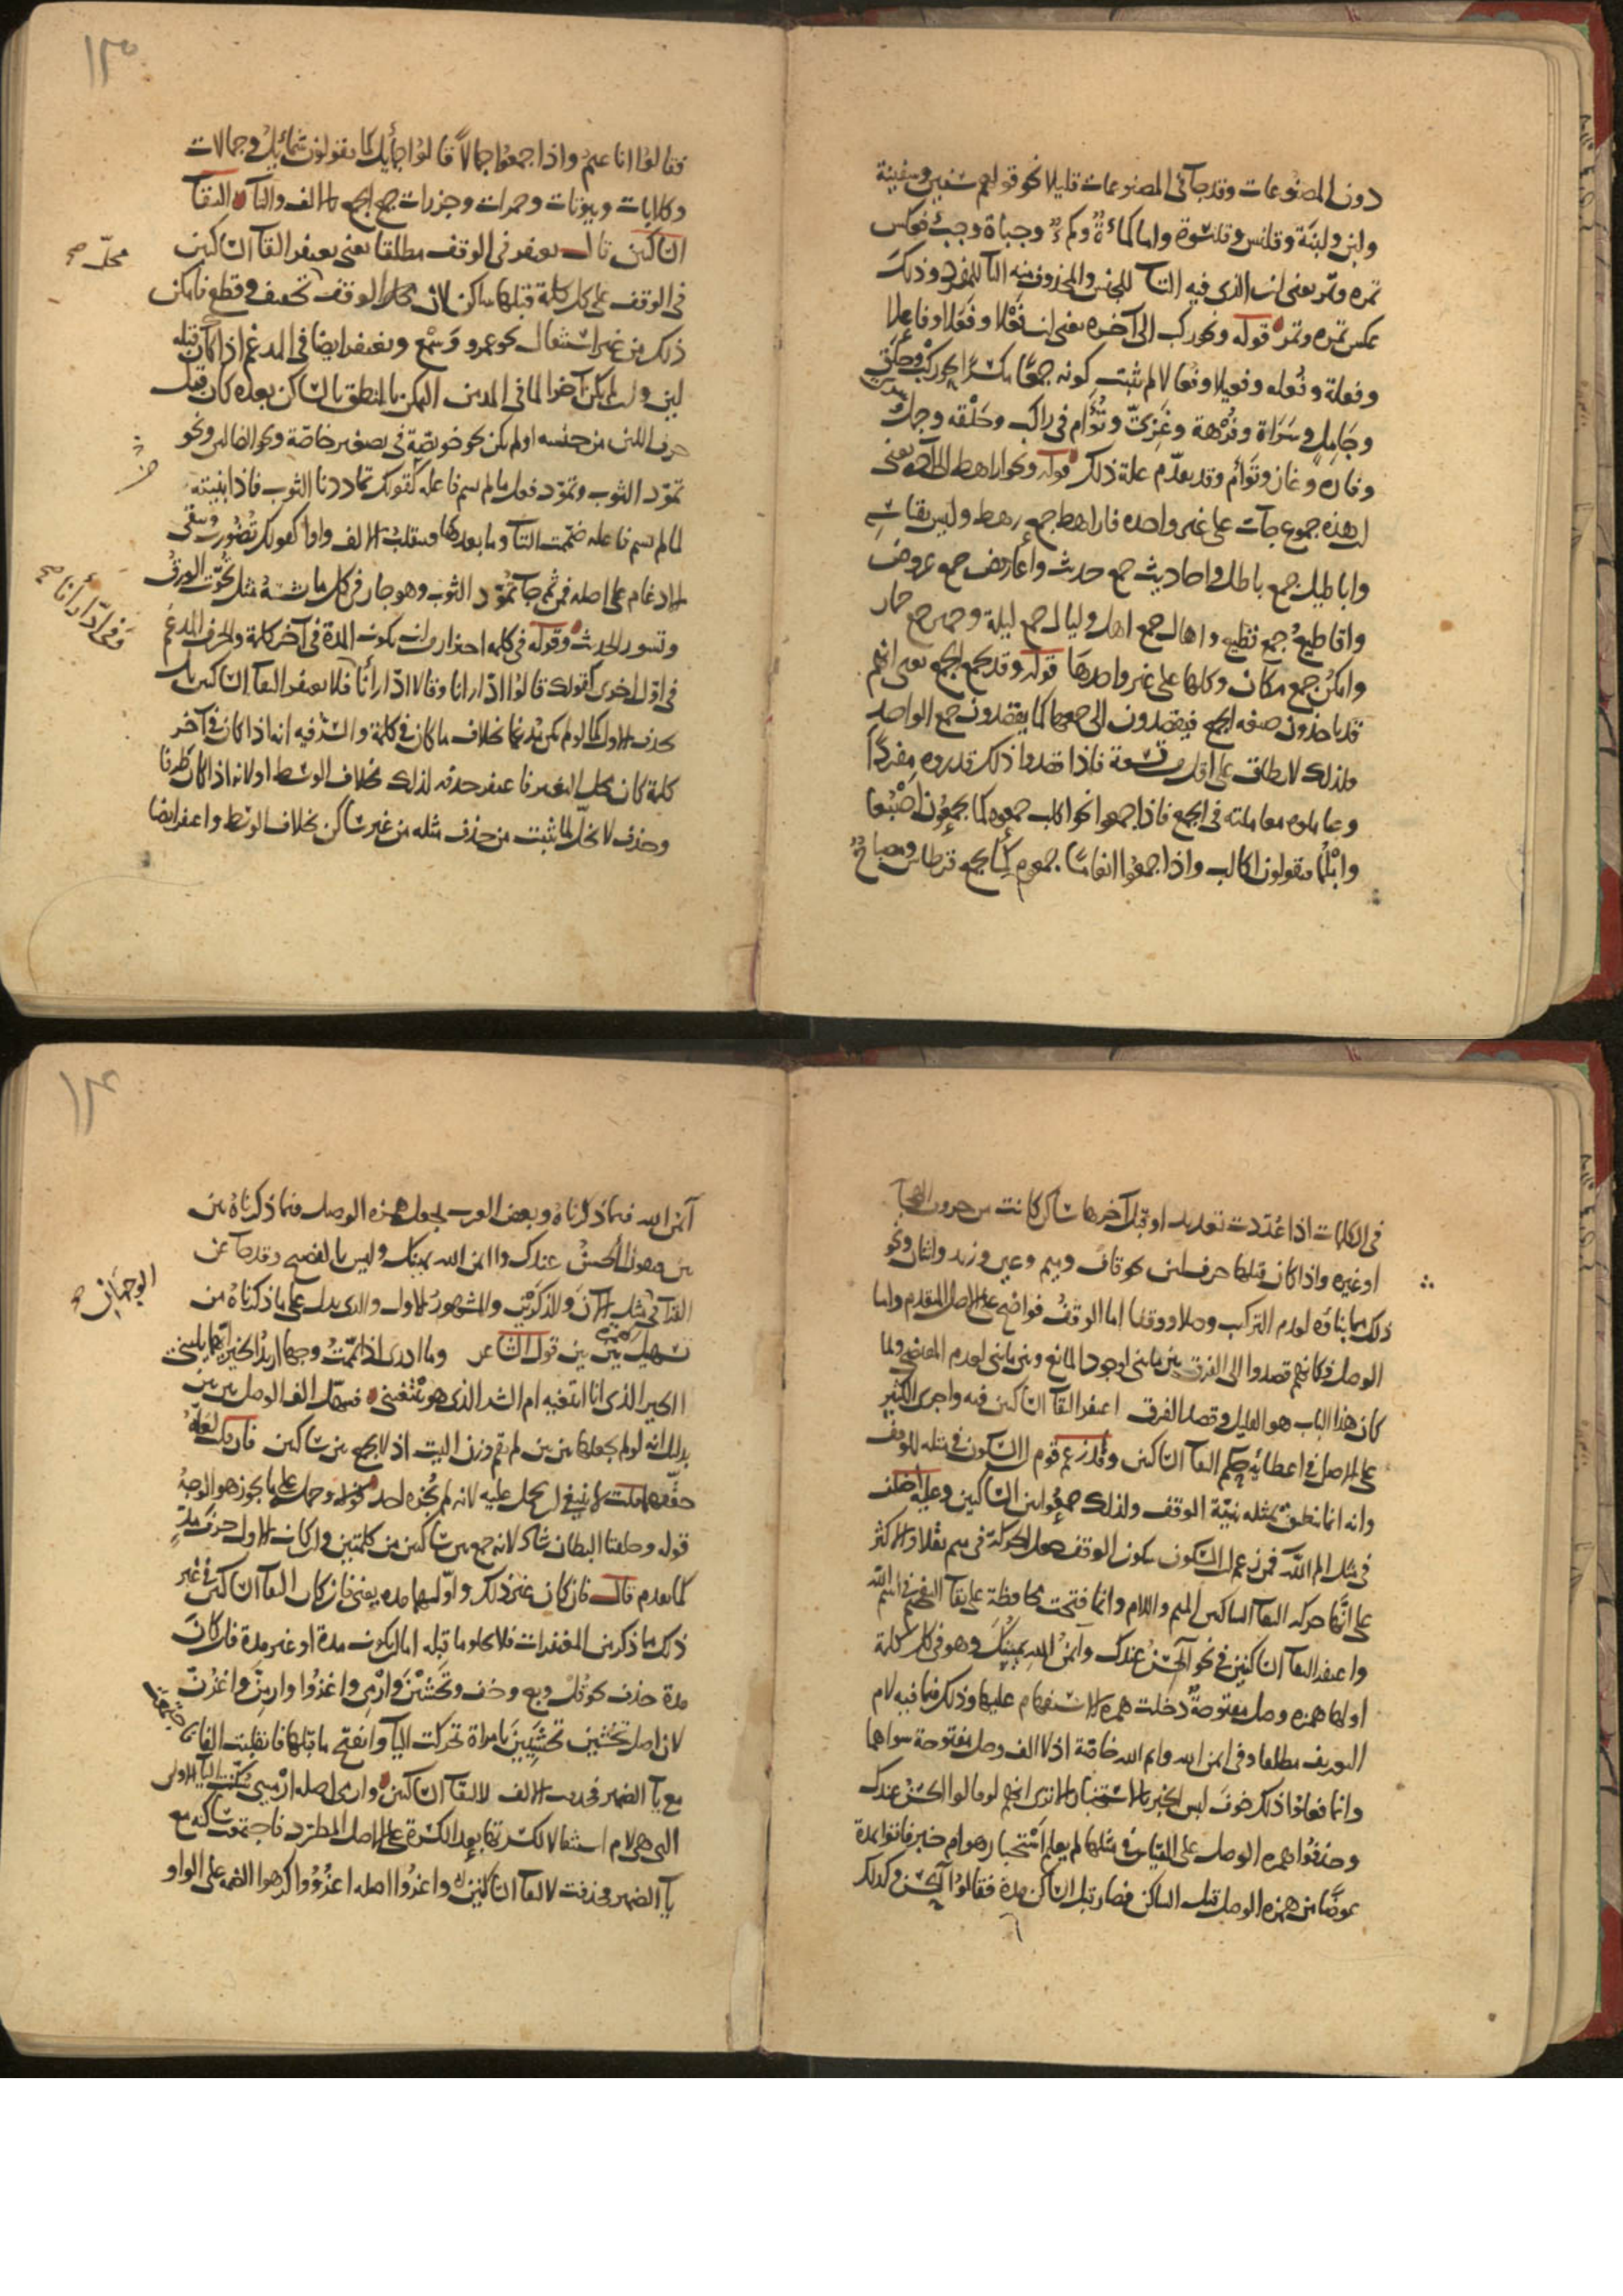 دون المصنوعات وقد جآ في المصنوعات قليلا نحو قولهم سفين وسفينة
ولبن ولبنة وقلنس وقلنسوة واما كماءة وكمء وجباة وجبء فعكس
تمره وتمر يعني ان الذي فيه التآ للجنس والمحذوف منه التآ للمفرد وذلك
عكس تمره وتمر قوله ونحو ركب الى آخره يعني ان فعلا وفعلا وفاعلا
وفعلة وفعله وفعيلا وفعالا لم يثبت كونه جمعا مكسرا نحو ركب وحلق
وجامل وسراة وفرهة وغزي وتؤام في راكب وحلقه وجمل
وفاره وغاز وتوأم وقد تقدم علة ذلك قوله ونحو اراهط الى آخره يعني
ان هذه جموع جآت على غير واحده فاراهط جمع رهط وليس بقياسه
واباطيل جمع باطل واحاديث جمع حديث واعاريض جمع عروض
واقاطيع جمع قطيع واهال جمع اهل وليال جمع ليلة وحمير جمع حمار
وامكن جمع مكان وكلها على غير واحدها قوله وقد يجمع الجمع يعني انهم
قد ياخذون صيغه الجمع فيقصدون الى جمعها كما يقصدون جمع الواحد
ولذلك لا يطلق على اقل من تسعة فاذا قصدوا ذلك قدروه مفردا
وعاملوه معاملته في الجمع فاذا جمعوا نحو اكلب جمعوه كما يجمعون اصبعا
وابلما فيقولون اكالب واذا جمعوا انعاما جمعوه كما يجمع قرطاس ومصباح
١٣٠
فقالوا اناعيم واذا جمعوا جمالا قالوا جمايل كما يقولون شمايل وجمالات
وكلابات وبيوتات وحمرات وجزرات جمع الجمع بالالف والتآ التقآ
الساكنين قال يغتفر في الوقف مطلقا يعني يغتفر التقآ الساكنين
محل صح
في الوقف على كل كلمة قبلها ساكن لان الوقف تخفيف وقطع فامكن
ذلك من غير استثقال نحو عمرو وسمع ويغتفر ايضا في المدغم اذا كان قبله
لين وان لم يكن آخرا لما في المد من التمكن بالنطق بالساكن بعده كان قبل
حرف اللين من جنسه او لم يكن نحو خويصة في تصغير خاصة ونحو الضالين ونحو
تمود الثوب وتمود فعل ما لم يسم فاعله كقولك تماددنا الثوب فاذا بنيته
لما لم يسم فاعله ضممت التآ وما بعدها وتقلب الالف واوا كقولك تضورب وبقي
الادغام على اصله فمن ثم جآ تمود الثوب وهو جار في كل ما مثل
وقوله في كلمه احتراز من ان يكون المدة في آخر كلمة والحرف المدغم
في اول اخرى كقولك قالوا ادارانا وقالا ادارأنا فلا يغتفر التقآ الساكنين بل
ففي ادارأنا صح
يحذف الاول كما لو لم يكن مدغما بخلاف ما كان في كلمة والسر فيه انه اذا كان في آخر
كلمة كان محل التغيير فاغتفر حذفه لذلك بخلاف الوسط او لانه اذا كان طرفا
وحذف لا يخل لما ثبت من حذف مثله من غير ساكن بخلاف الوسط واغتفر ايضا
في الكلمات اذا عددت تعديد او قبل آخرها ساكن كانت من حروف الهجآ
او غيره واذا كان قبلها حرف لين نحو قاف وميم وعين وزيد واثنان ونحو
ذلك مما بناؤه لعدم التركيب وصلا ووقفا اما الوقف فواضح على الاصل المتقدم واما
الوصل فكانهم قصدوا الى الفرق بين ما بني لوجود المانع وبين ما بني لعدم المقتضي ولما
كان هذا الباب هو القليل وقصد الفرق اغتفر التقآ الساكنين فيه واجري الكثير
على الاصل في اعطائه حكم التقآ الساكنين وقد زعم قوم ان السكون في مثله للوقف
وانه انما نطق بمثله بنية الوقف ولذلك جمعوا بين الساكنين وعليه اختلف
في مثل الم الله فمن زعم ان السكون سكون الوقف جعل الحركة في ميم نقلا والاكثر
على انها حركه التقآ الساكنين الميم واللام وانما فتحت محافظة على بقآ التفخيم في اسم الله
واغتفر التقآ الساكنين في نحو آلحسن عندك وآيمن الله يمينك وهو في كل كلمة
اولها همزه وصل مفتوحة دخلت همزه الاستفهام عليها وذلك فيما فيه لام
التعريف مطلقا وفي ايمن الله وايم الله خاصة اذ لا الف وصل مفتوحة سواها
وانما فعلوا ذلك خوف لبس الخبر بالاستخبار الا ترى انهم لو قالوا الحسن عندك
وحذفوا همزه الوصل على القياس في مثلها لم يعلم استخبار هو ام خبر فاتوا بمدة
عوضا من همزه الوصل قبل الساكن فصار قبل الساكن مدة فقالوا آلحسن وكذلك
١٣١
آيمن الله فيما ذكرناه وبعض العرب يجعل همزه الوصل فيما ذكرناه بين
بين فيقول االحسن عندك واايمن الله يمينك وليس بالفصيح وقد جآ عن
القرآ في مثل الآن والذكرين والمشهور الاول والذي يدل على ما ذكرناه من
الوجهان صح
تسهيل بين بين قول الشاعر وما ادري اذا يممت وجها اريد الخير ايهما يليني
االخير الذي انا ابتغيه ام الشر الذي هو يبتغيني فسهل الف الوصل بين بين
بدليل انه لو لم يجعلها بين بين لم يقم وزن البيت اذ لا يجمع بين ساكنين فان قيل لعله
حققهما قلت لا ينبغي ان يحمل عليه لانه لم يجزه احد وحمله على ما يجوز هو الوجه
قوله وحلقتا البطان شاذ لانه جمع بين ساكنين من كلمتين وان كان الاول حرف مد
لما تقدم قال فان كان غير ذلك واولهما مده يعني فان كان التقآ الساكنين في غير
ذلك ما ذكر من المغتفرات فلا يخلو ما قبله اما ان يكون مدة او غير مدة فان كان
مدة حذف نحو قل وبع وخف وتخشين وارمي واغزوا وارمن واغزن
لان اصل تخشين تخشيين يا امراة تحركت اليآ وانفتح ما قبلها فانقلبت الفا
مع يآ الضمير فحذفت الالف لالتقآ الساكنين وارمي اصله ارميي سكنت اليآ الاولى
التي هي لام استثقالا لكسرتها بعد الكسرة على الاصل المطرد فاجتمعت ساكنه مع
يآ الضمير فحذفت لالتقآ الساكنين واغزوا اصله اغزووا كرهوا الضمه على الواو